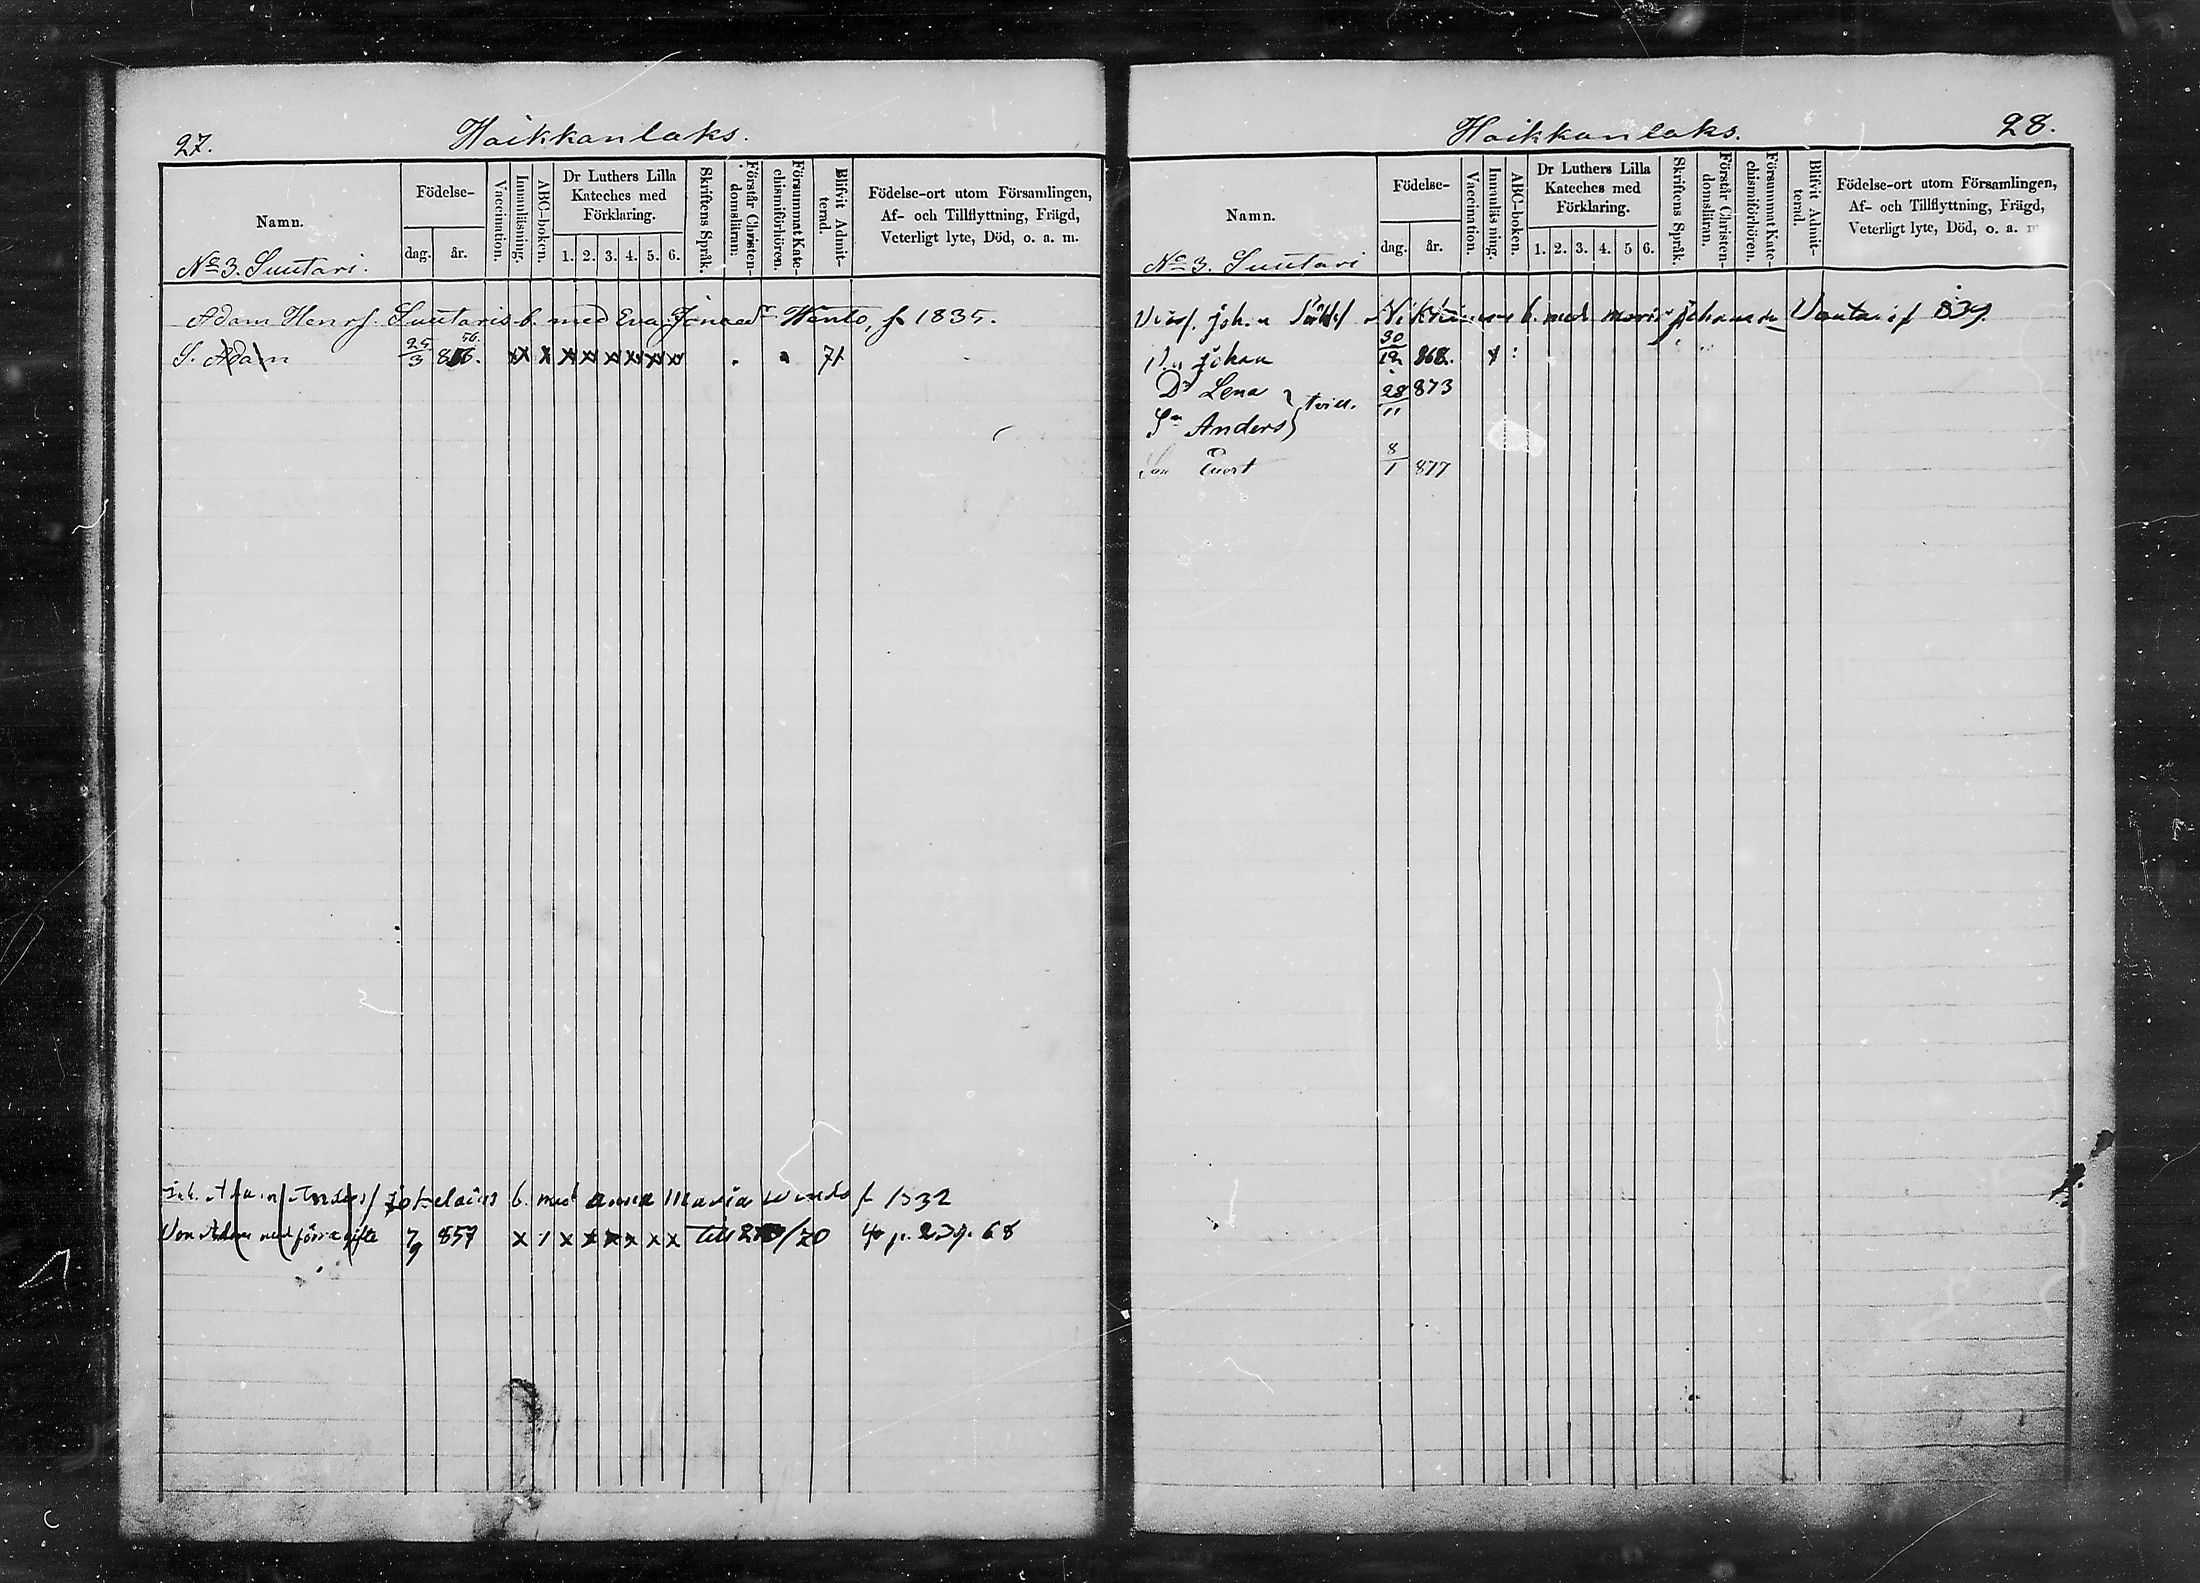 27.
Haikkanlaks.
Namn.
Födelse-
dag.
år.
Vaccination.
Innanläsning.
ABC-boken.
Dr Luthers Lilla
Kateches med
Förklaring.
1. 2. 3. 4. 5. 6.
Skriftens Språk.
Förstår Christen-
domsläran:
Försummat Kate-
chismiförhören.
Blifvit Admit-
terad.
Födelse-ort utom Församlingen,
Af- och Tillflyttning, Frägd,
Veterligt lyte, Död, o. a. m.
No 3. Suutari.
Adam Henrs. Suutaris b. med Eva Jonaedr Wento, f 1835.
56.
S. Adam 25/3 856. x x x x x x x x x . . 71
Adam Anders/ Jokelains b. med Anna Maria f 1832
Son Adam med förra gifte 7/9 857 x 1 x x x x x x Till /70 p. 239. 68
28.
Haikkanlaks.
Namn.
Födelse-
dag.
år.
Vaccination.
Innanläs ning.
ABC-boken.
Dr Luthers Lilla
Kateches med
Förklaring.
1. 2. 3. 4. 5 6.
Skriftens Språk.
Förstår Christen-
domsläran.
Försummat Kate-
chismiförhören.
Blifvit Admit-
terad.
Födelse-ort utom Församlingen,
Af- och Tillflyttning, Frägd,
Veterligt lyte, Död, o. a. m
No 3. Suutari
Joh. Nikkinens b. med Maria f 839.
Johan 30/12 868.
Dr Lena } tvill. 28/11 873
Sn Anders }
Son Evert 8/1 877